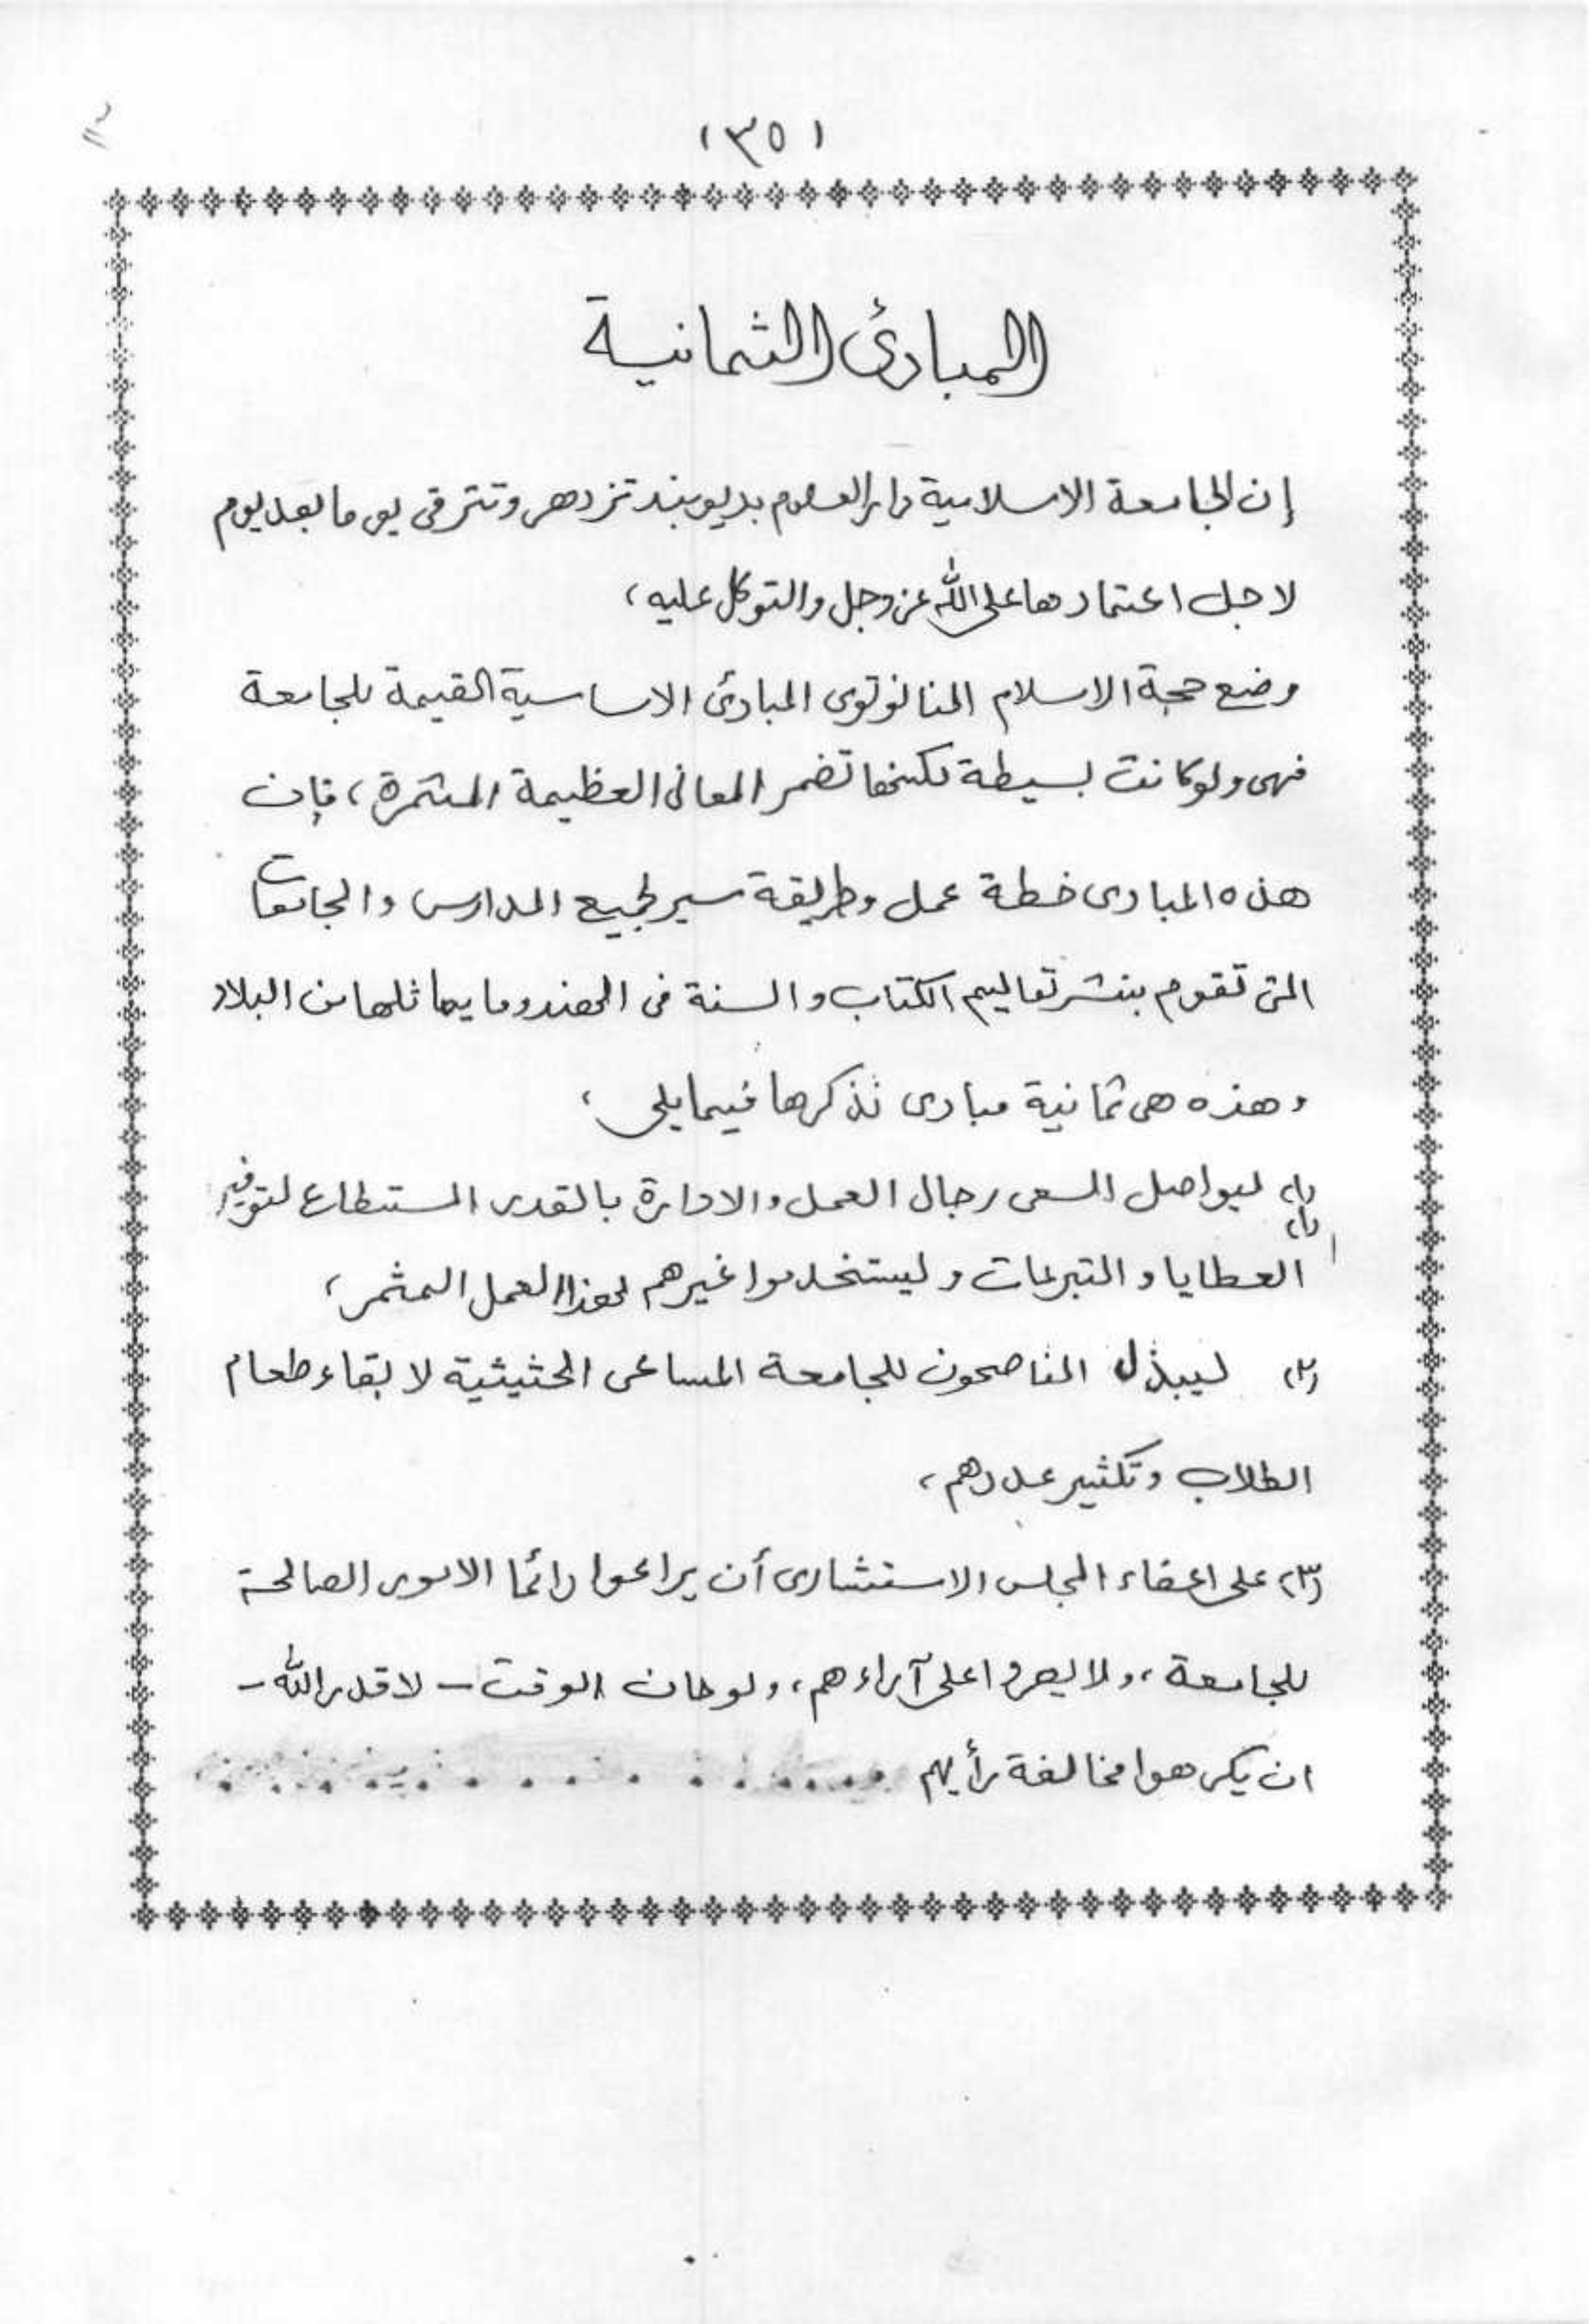 (٣٥)
المبادئ الثمانية
إن الجامعة الاسلامية دار العلوم بديوبند تزدهر وتترقى يوما بعد يوم
لاجل اعتمادها على الله عز وجل والتوكل عليه،
وضع حجة الاسلام النانوتوى المبادئ الاساسية القيمة للجامعة
فهى ولو كانت بسيطة لكنها تضمر المعانى العظيمة المثمرة، فإن
هذه المبادى خطة عمل وطريقة سير لجميع المدارس والجامعات
التى تقوم بنشر تعاليم الكتاب والسنة فى الهند وما يماثلها من البلاد
وهذه هى ثمانية مبادى نذكرها فيما يلى،
(١) ليواصل السعى رجال العمل والادارة بالقدر المستطاع لتوفير
العطايا والتبرعات وليستخدموا غيرهم لهذا العمل المثمر،
(٢) ليبذل الناصحون للجامعة المساعى الحثيثية لابقاء طعام
الطلاب وتكثير عددهم،
(٣) على اعضاء المجلس الاستشارى أن يراعوا دائما الامور الصالحة
للجامعة، ولا يصروا على آراءهم، ولو حان الوقت - لا قدر الله -
ان يكرهوا مخالفة رأيهم ..............